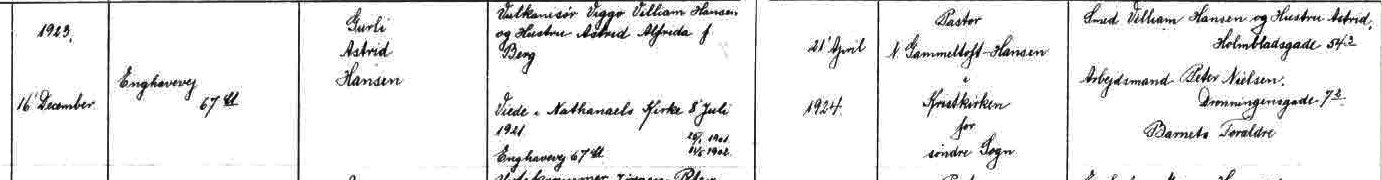 1923.
16' December
Enghavevej
67 St
Gurli
Astrid
Hansen
Vulkanisør Viggo Villiam Hansen
og Hustru Astrid Alfreda f.
Berg
Viede i Nathanaels Kirke 8' Juli
1921
1901
Enghavevej 67 St
1902
21' April
1924.
Pastor
N. Gammeltoft-Hansen
i
Kristkirken
for
søndre Sogn
Smed Villiam Hansen og Hustru Astrid,
Holmbladsgade 54
Arbejdsmand Peter Nielsen.
Dronningensgade 73
Barnets Forældre